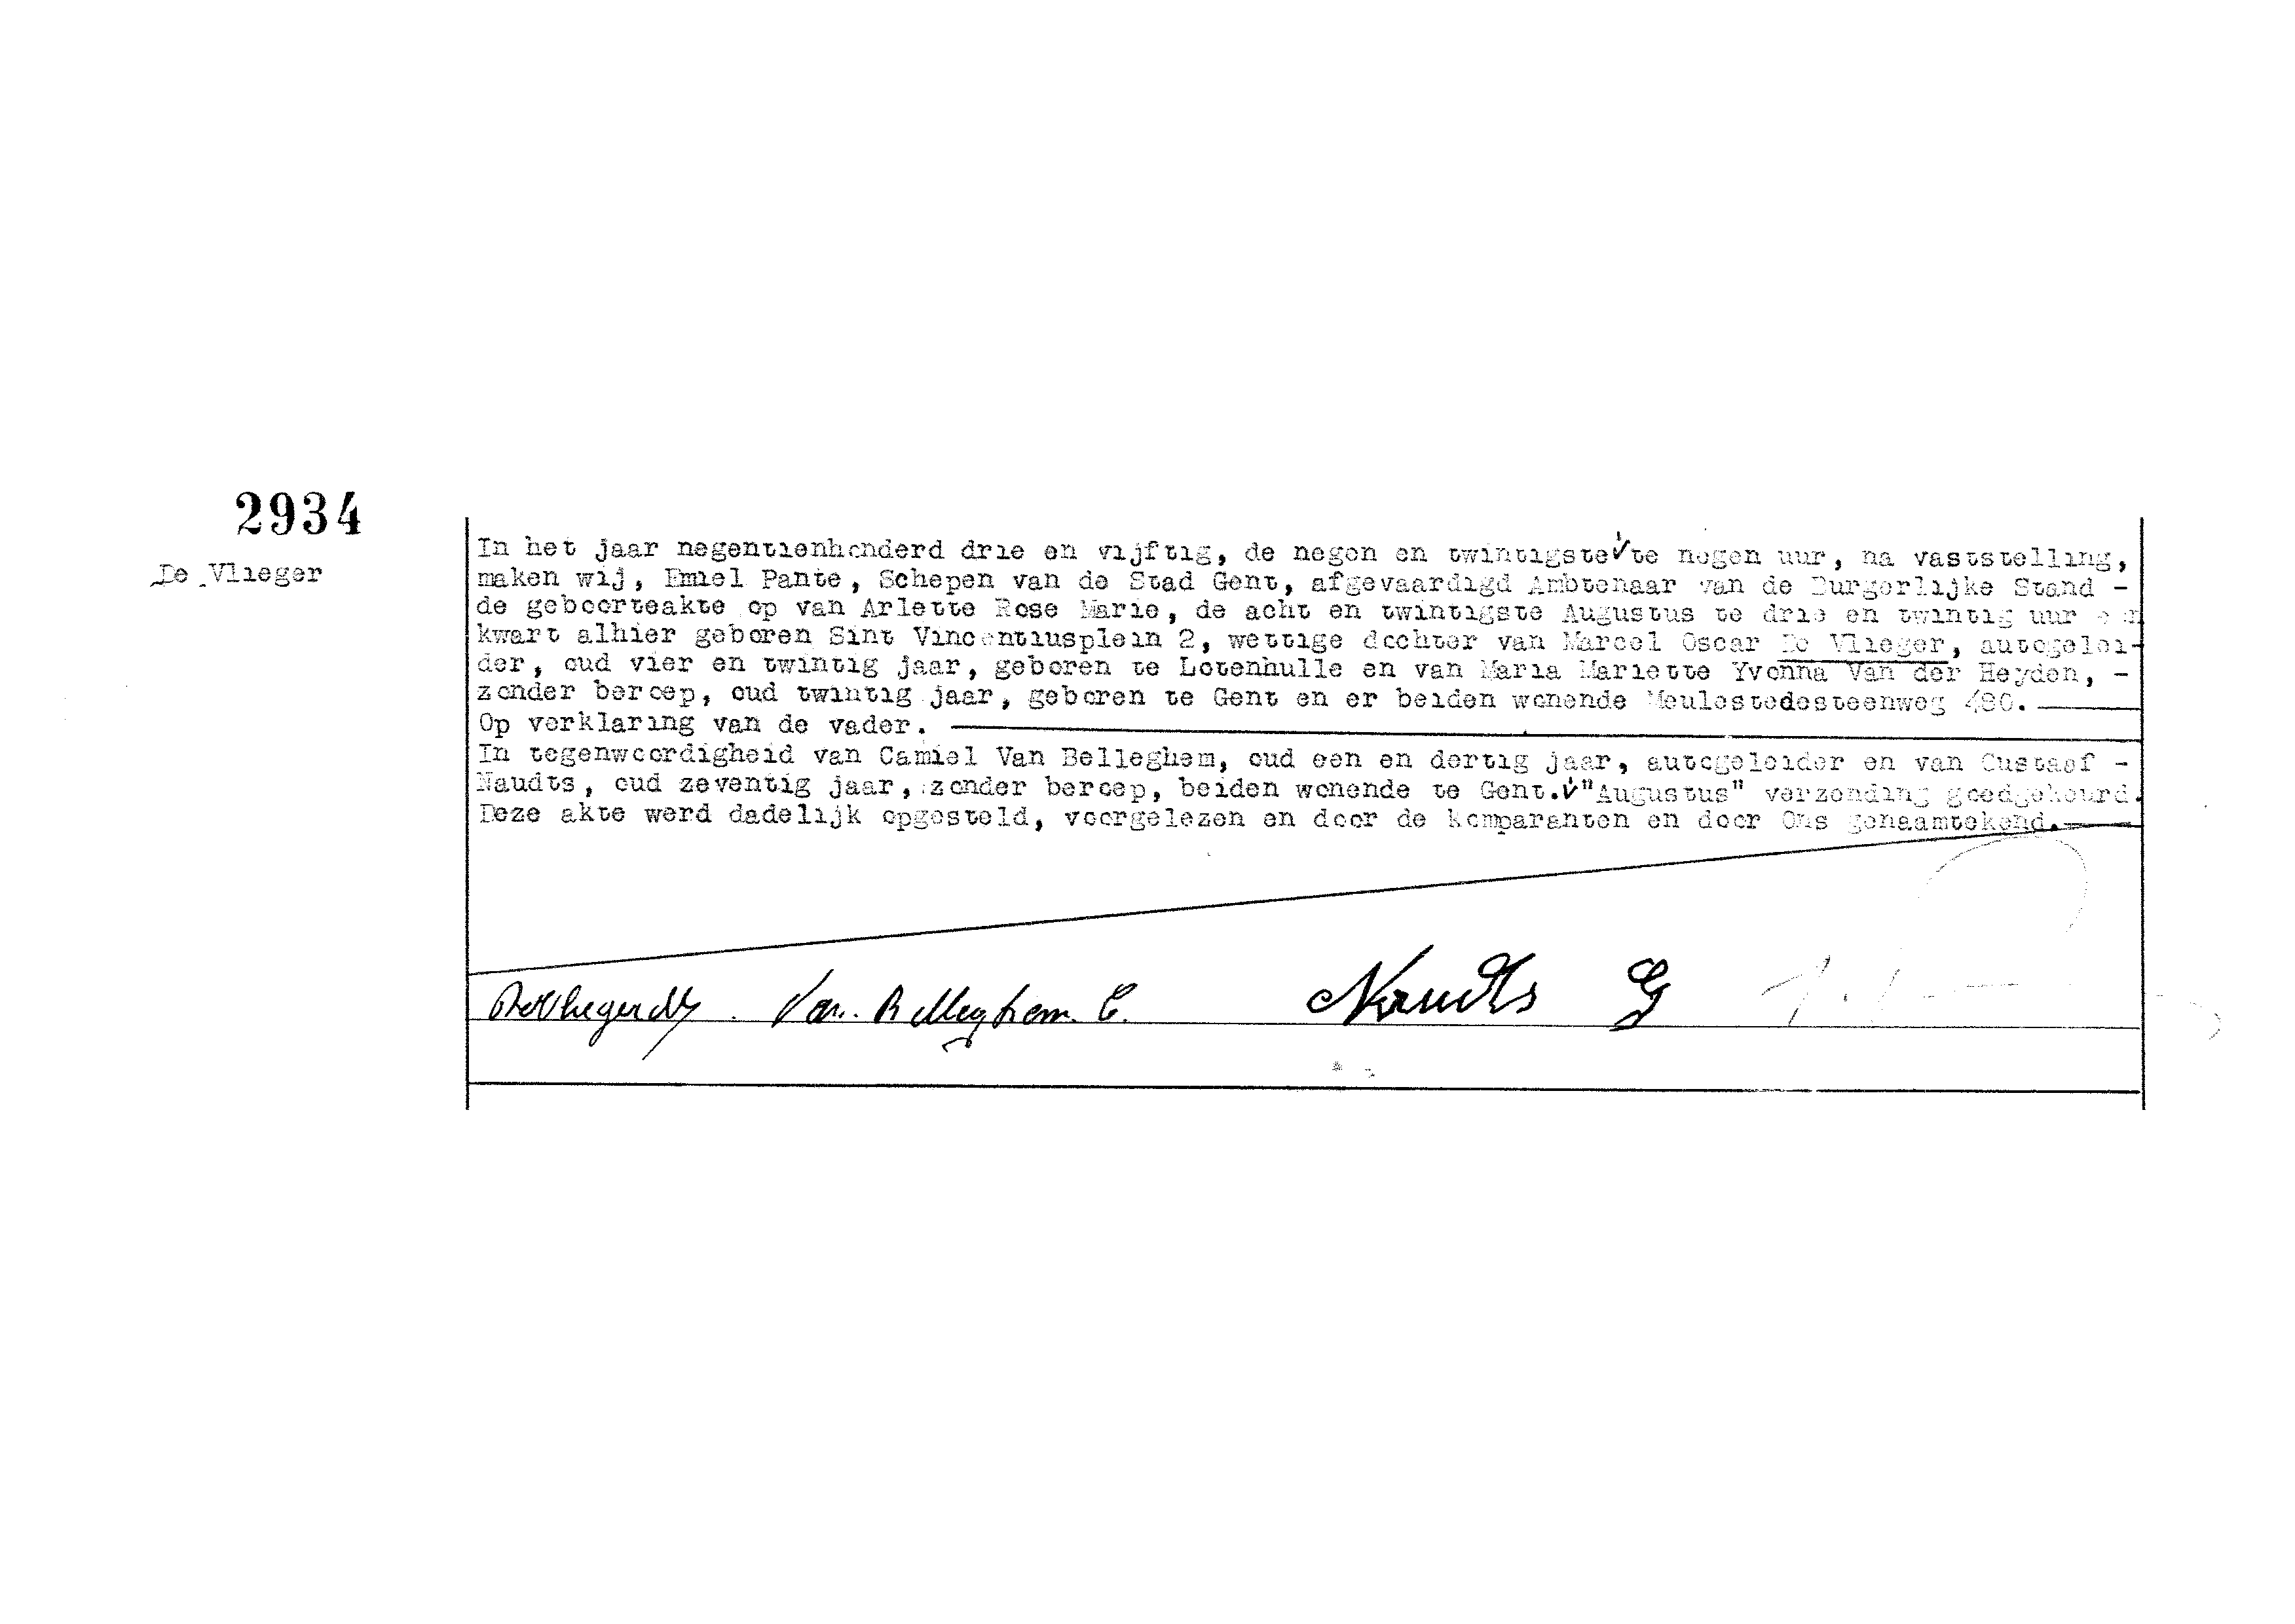 2934
De Vlieger
In het jaar negentienhonderd drie en vijftig, de negen en twintigste√te negen uur, na vaststelling,
maken wij, Emiel Pante, Schepen van de Stad Gent, afgevaardigd Ambtenaar van de Burgerlijke Stand -
de geboorteakte op van Arlette Rose Marie, de acht en twintigste Augustus te drie en twintig uur een
kwart alhier geboren Sint Vincentiusplein 2, wettige dochter van Marcel Oscar De Vlieger, autogelei-
der, oud vier en twintig jaar, geboren te Lotenhulle en van Maria Mariette Yvonna Van der Heyden, -
zonder beroep, oud twintig jaar, geboren te Gent en er beiden wonende Meulestedesteenweg 480.
Op verklaring van de vader.
In tegenwoordigheid van Camiel Van Belleghem, oud een en dertig jaar, autogeleider en van Gustaaf -
Naudts, oud zeventig jaar, zonder beroep, beiden wonende te Gent.√"Augustus" verzending goedgekeurd.
Deze akte werd dadelijk opgesteld, voorgelezen en door de komparanten en door Ons genaamtekend.
Van Belleghem C. Naudts G